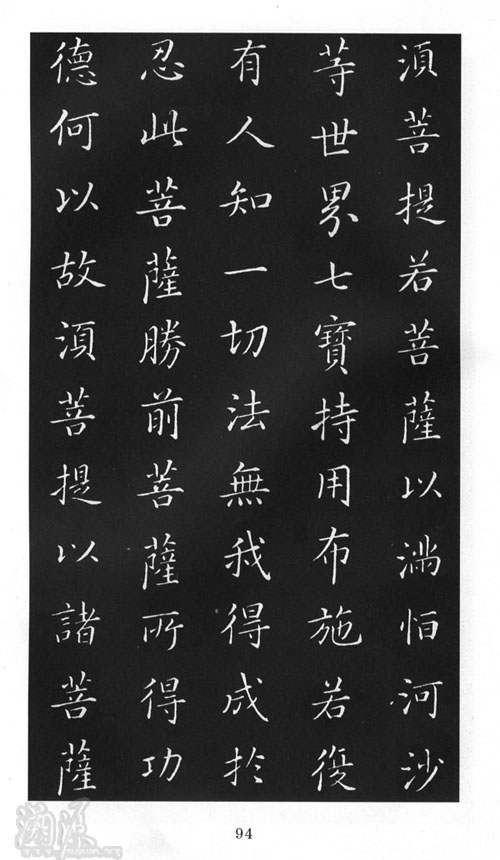 湏菩提若菩薩以滿恒河沙
等世界七寶持用布施若復
有人知一切法無我得成於
忍此菩薩勝前菩薩所得功
德何以故湏菩提以諸菩薩
94